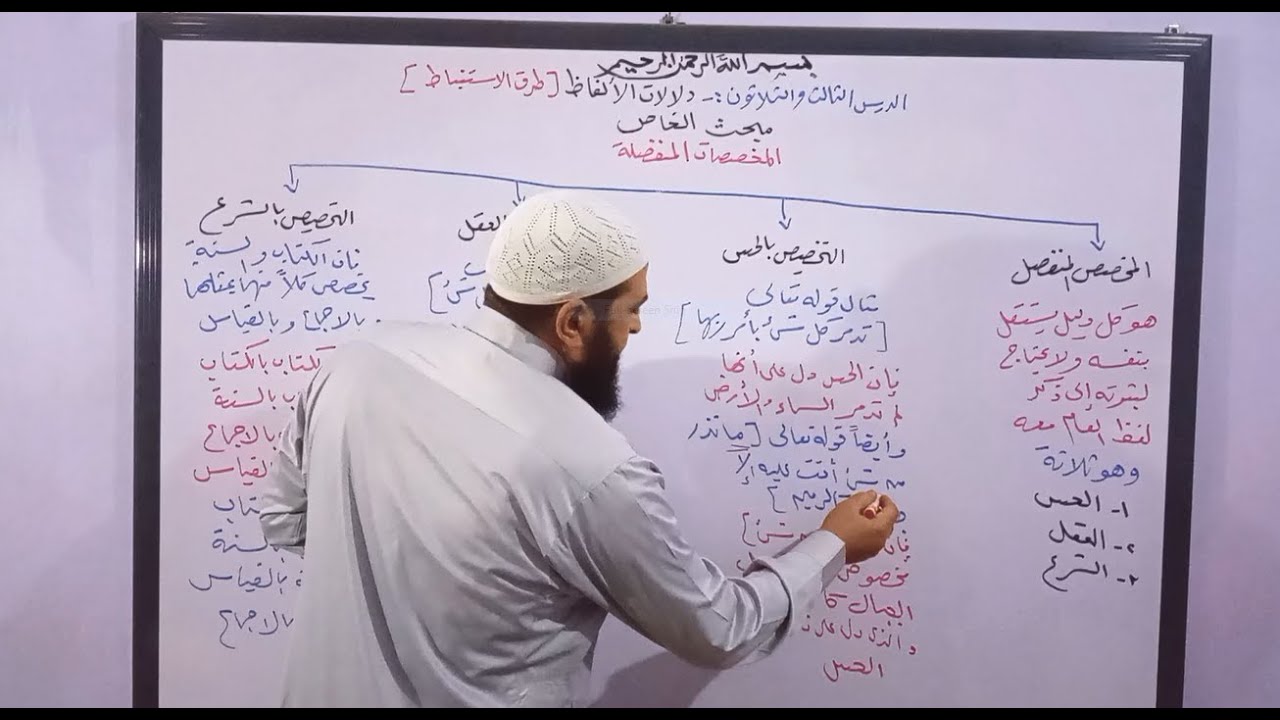 بسم الله الرحمن الرحيم
الدرس الثالث والثلاثون :- دلالات الألفاظ [طرق الاستنباط]
مبحث الخاص
المخصصات المنفصلة
المخصص المنفصل
هو كل دليل يستقل
بنفسه ولا يحتاج
لثبوته إلى ذكر
لفظ العام معه
وهو ثلاثة
١- الحس
٢- العقل
٣- الشرع
التخصيص بالحس
مثال قوله تعالى
[تدمر كل شئ بأمر ربها]
فإن الحس دل على أنها
لم تدمر السماء والأرض
وأيضاً قوله تعالى [ما تذر
من شئ أتت عليه إلا
كالرميم]
شئ]
مخصوص
الجبال
والذي دل على
الحس
العقل
شئ]
التخصيص بالشرع
فإن الكتاب والسنة
يخصص كلاً منهما بمثلهما
وبالاجماع وبالقياس
الكتاب بالكتاب
بالسنة
بالاجماع
القياس
بالسنة
بالقياس
بالاجماع